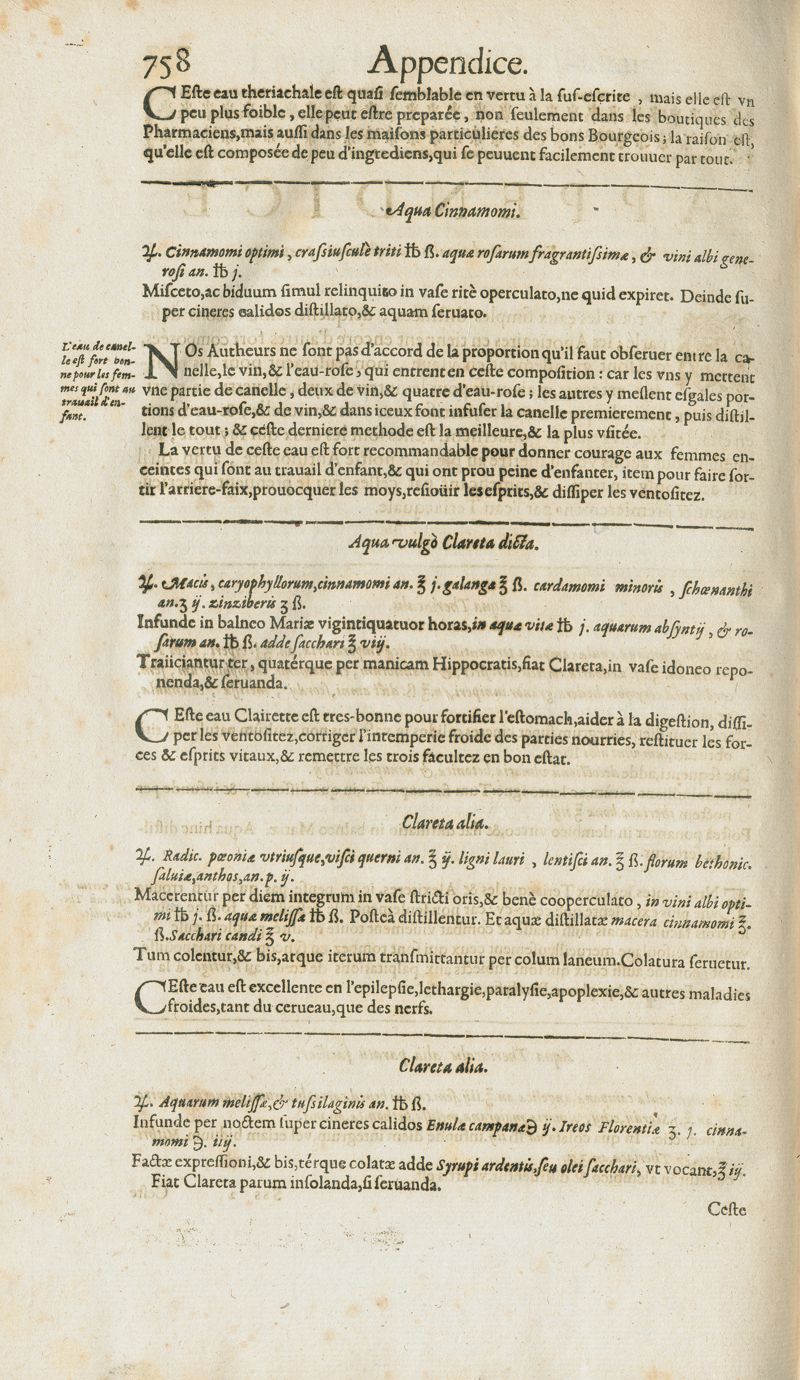 758 Appendice.
CEſte eau theriachale eſt quaſi ſemblable en vertu à la ſuſ-eſcrite , mais elle eſt vn
peu plus foible , elle peut eſtre preparée , non ſeulement dans les boutiques des
Pharmaciens,mais auſſi dans les maiſons particulieres des bons Bourgeois ; la raiſon eſt,
qu'elle eſt compoſée de peu d'ingrediens,qui ſe peuuent facilement trouuer par tout.
Aqua Cinnamomi.
℞. Cinnamomi optimi , craſsiuſculè triti ℔ ß. aquæ roſarum fragrantiſsimæ , & vini albi gene-
roſi an. ℔ j.
Miſceto,ac biduum ſimul relinquito in vaſe ritè operculato,ne quid expiret. Deinde ſu-
per cineres calidos diſtillato,& aquam ſeruato.
L'eau de canel-
le eſt fort bon-
ne pour les fem-
mes qui ſont au
trauail d'en-
fant.
NOs Autheurs ne ſont pas d'accord de la proportion qu'il faut obſeruer entre la ca-
nelle,le vin,& l'eau-roſe , qui entrent en ceſte compoſition : car les vns y mettent
vne partie de canelle , deux de vin,& quatre d'eau-roſe ; les autres y meſlent eſgales por-
tions d'eau-roſe,& de vin,& dans iceux font infuſer la canelle premierement , puis diſtil-
lent le tout ; & ceſte derniere methode eſt la meilleure,& la plus vſitée.
La vertu de ceſte eau eſt fort recommandable pour donner courage aux femmes en-
ceintes qui ſont au trauail d'enfant,& qui ont prou peine d'enfanter, item pour faire ſor-
tir l'arriere-faix,prouocquer les moys,reſioüir les eſprits,& diſſiper les ventoſitez.
Aqua vulgò Clareta dicta.
℞. Macis , caryophyllorum,cinnamomi an. ℥ j. galangæ ℥ ß. cardamomi minoris , ſchœnanthi
an.ʒ ij. zinziberis ʒ ß.
Infunde in balneo Mariæ vigintiquatuor horas,in aqua vitæ ℔ j. aquarum abſyntij , & ro-
ſarum an. ℔ ß. adde ſacchari ℥ viij.
Traiiciantur ter , quatérque per manicam Hippocratis,fiat Clareta,in vaſe idoneo repo-
nenda,& ſeruanda.
CEſte eau Clairette eſt tres-bonne pour fortifier l'eſtomach,aider à la digeſtion, diſſi-
per les ventoſitez,corriger l'intemperie froide des parties nourries, reſtituer les for-
ces & eſprits vitaux,& remettre les trois facultez en bon eſtat.
Clareta alia.
℞. Radic. pœoniæ vtriuſque,viſci querni an. ℥ ij. ligni lauri , lentiſci an. ℥ ß. florum bethonic.
ſaluiæ,anthos,an.p. ij.
Macerentur per diem integrum in vaſe ſtricti oris,& benè cooperculato , in vini albi opti-
mi ℔ j. ß. aquæ meliſſæ ℔ ß. Poſteà diſtillentur. Et aquæ diſtillatæ macera cinnamomi ℥.
ß.Sacchari candi ℥ v.
Tum colentur,& bis,atque iterum tranſmittantur per colum laneum.Colatura ſeruetur.
CEſte eau eſt excellente en l'epilepſie,lethargie,paralyſie,apoplexie,& autres maladies
froides,tant du cerueau,que des nerfs.
Clareta alia.
℞. Aquarum meliſſæ,& tuſsilaginis an. ℔ ß.
Infunde per noctem ſuper cineres calidos Enulæ campanæ ℈ ij. Ireos Florentiæ ʒ. j. cinna-
momi ℈. iiij.
Factæ expreſſioni,& bis,térque colatæ adde Syrupi ardentis,ſeu olei ſacchari, vt vocant,℥ iij.
Fiat Clareta parum inſolanda,ſi ſeruanda.
Ceſte